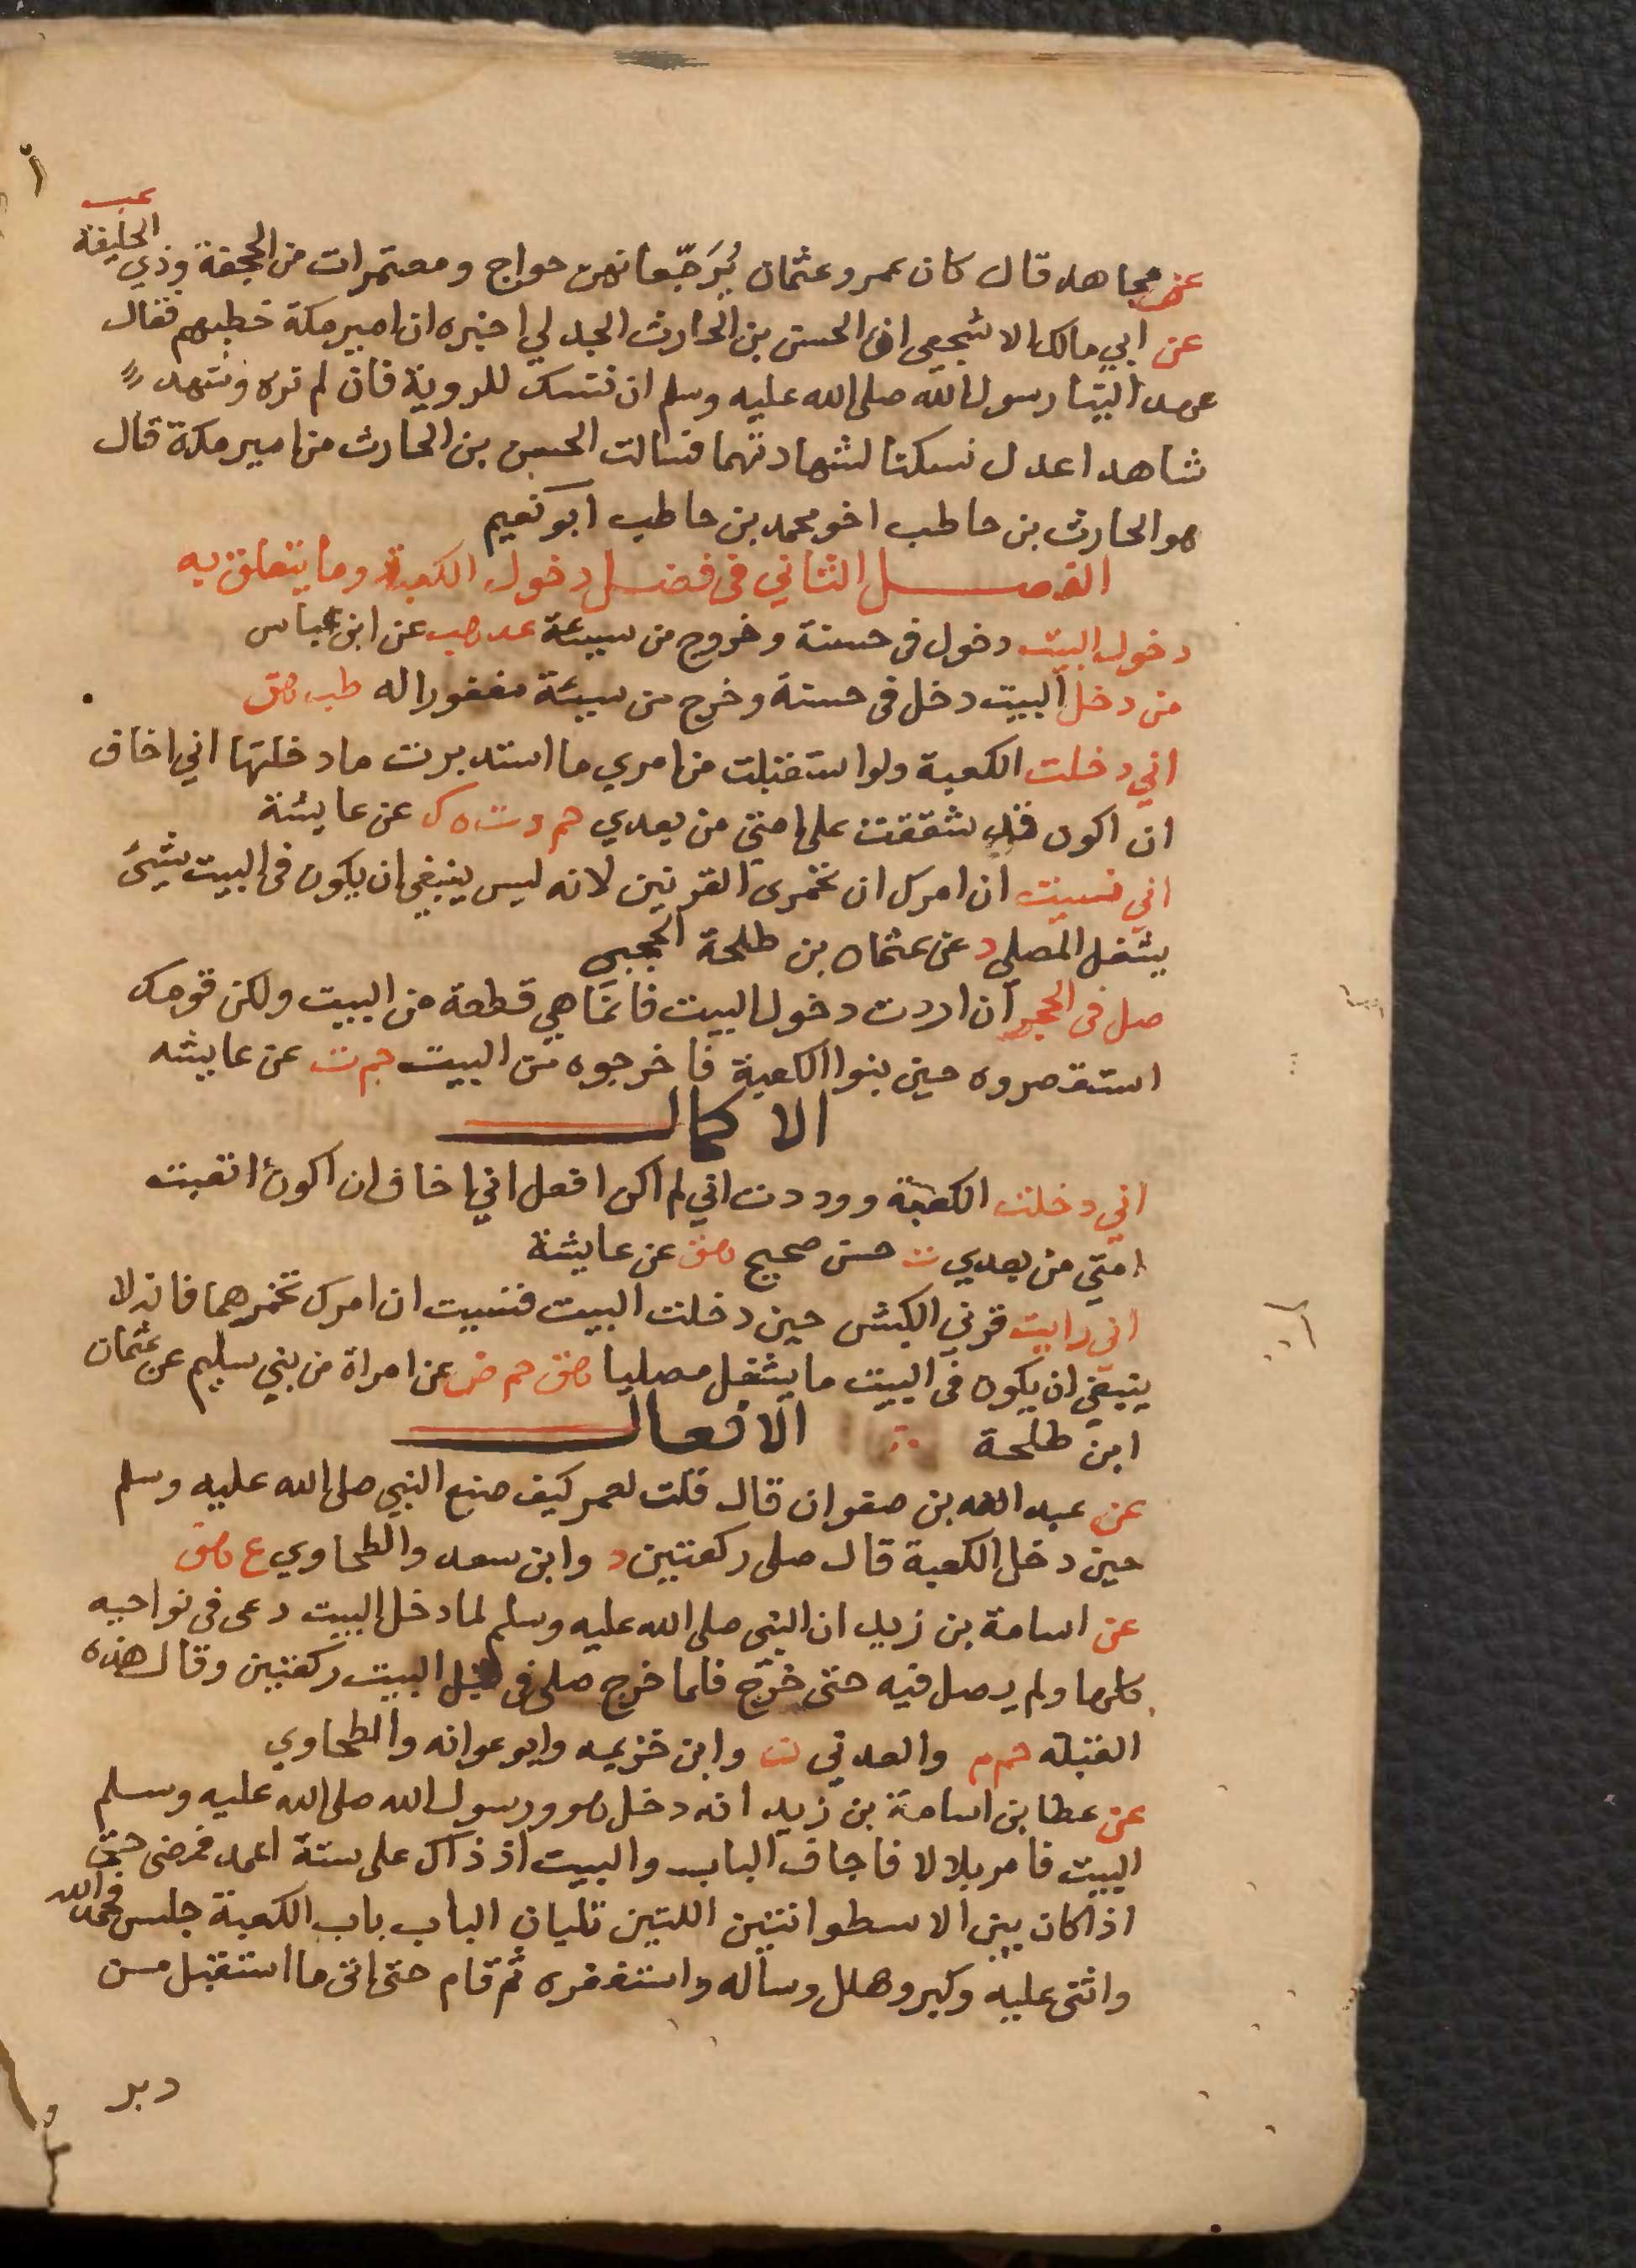 عب
عن مجاهد قال كان عمر وعثمان يُرَجّعانهن حواج ومعتمرات من الجحفة وذي الحليفة
عن ابي مالك الاشجعي ان الحسن بن الحارث الجدلي اخبره ان امير مكة خطبهم فقال
عهد الينا رسول الله صلى الله عليه وسلم ان ننسك للروية فان لم نره وشهد
شاهدا عدل نسكنا لشهادتهما فسالت الحسن بن الحارث من امير مكة قال
هو الحارث بن حاطب اخو محمد بن حاطب ابو نعيم
الفصل الثاني فى فضل دخول الكعبة وما يتعلق به
دخول البيت دخول فى حسنة وخروج من سيئة عد هب عن ابن عباس
من دخل البيت دخل فى حسنة وخرج من سيئة مغفورا له طب هق
اني دخلت الكعبة ولو استقبلت من امري ما استدبرت ما دخلتها اني اخاف
ان اكون قد شققت على امتي من بعدي حم د ت ه ك عن عايشة
اني نسيت ان امرك ان تخمرى القرنين لانه ليس ينبغي ان يكون فى البيت شيئ
يشغل المصلي د عن عثمان بن طلحة الحجبى
صل فى الحجر ان اردت دخول البيت فانما هي قطعة من البيت ولكن قومك
استقصروه حين بنوا الكعبة فاخرجوه من البيت حم ت عن عايشه
الاكمال
اني دخلت الكعبة ووددت اني لم اكن افعل اني اخاف ان اكون اتعبت
امتي من بعدي ت حسن صحيح هق عن عايشة
اني رايت قرني الكبش حين دخلت البيت فنسيت ان امرك تخمرهما فانه لا
ينبغي ان يكون فى البيت ما يشغل مصليا هق حم ض عن امراة من بني سليم عن عثمان
ابن طلحة الافعال
عن عبد الله بن صفوان قال قلت لعمر كيف صنع النبي صلى الله عليه وسلم
حين دخل الكعبة قال صلى ركعتين د وابن سعد والطحاوي ع هق
عن اسامة بن زيد ان النبي صلى الله عليه وسلم لما دخل البيت دعى فى نواحيه
كلها ولم يصل فيه حتى خرج فلما خرج صلى فى قبل البيت ركعتين وقال هذه
القبلة حم م والعدني ن وابن خزيمه وابو عوانه والطحاوي
عن عطا بن اسامة بن زيد انه دخل هو ورسول الله صلى الله عليه وسلم
البيت فامر بلالا فاجاف الباب والبيت اذ ذاك على ستة اعمد فمضى حتى
اذا كان بين الاسطوانتين اللتين تليان الباب باب الكعبة جلس فحمد الله
واثنى عليه وكبر وهلل وساله واستغفره ثم قام حتى اتى ما استقبل من
دبر